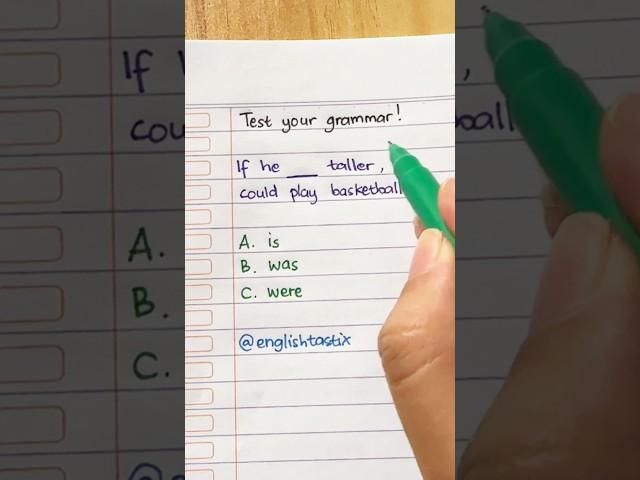 Test your grammar!
If he ___ taller,
could play basketball
A. is
B. was
C. were
@englishtastix